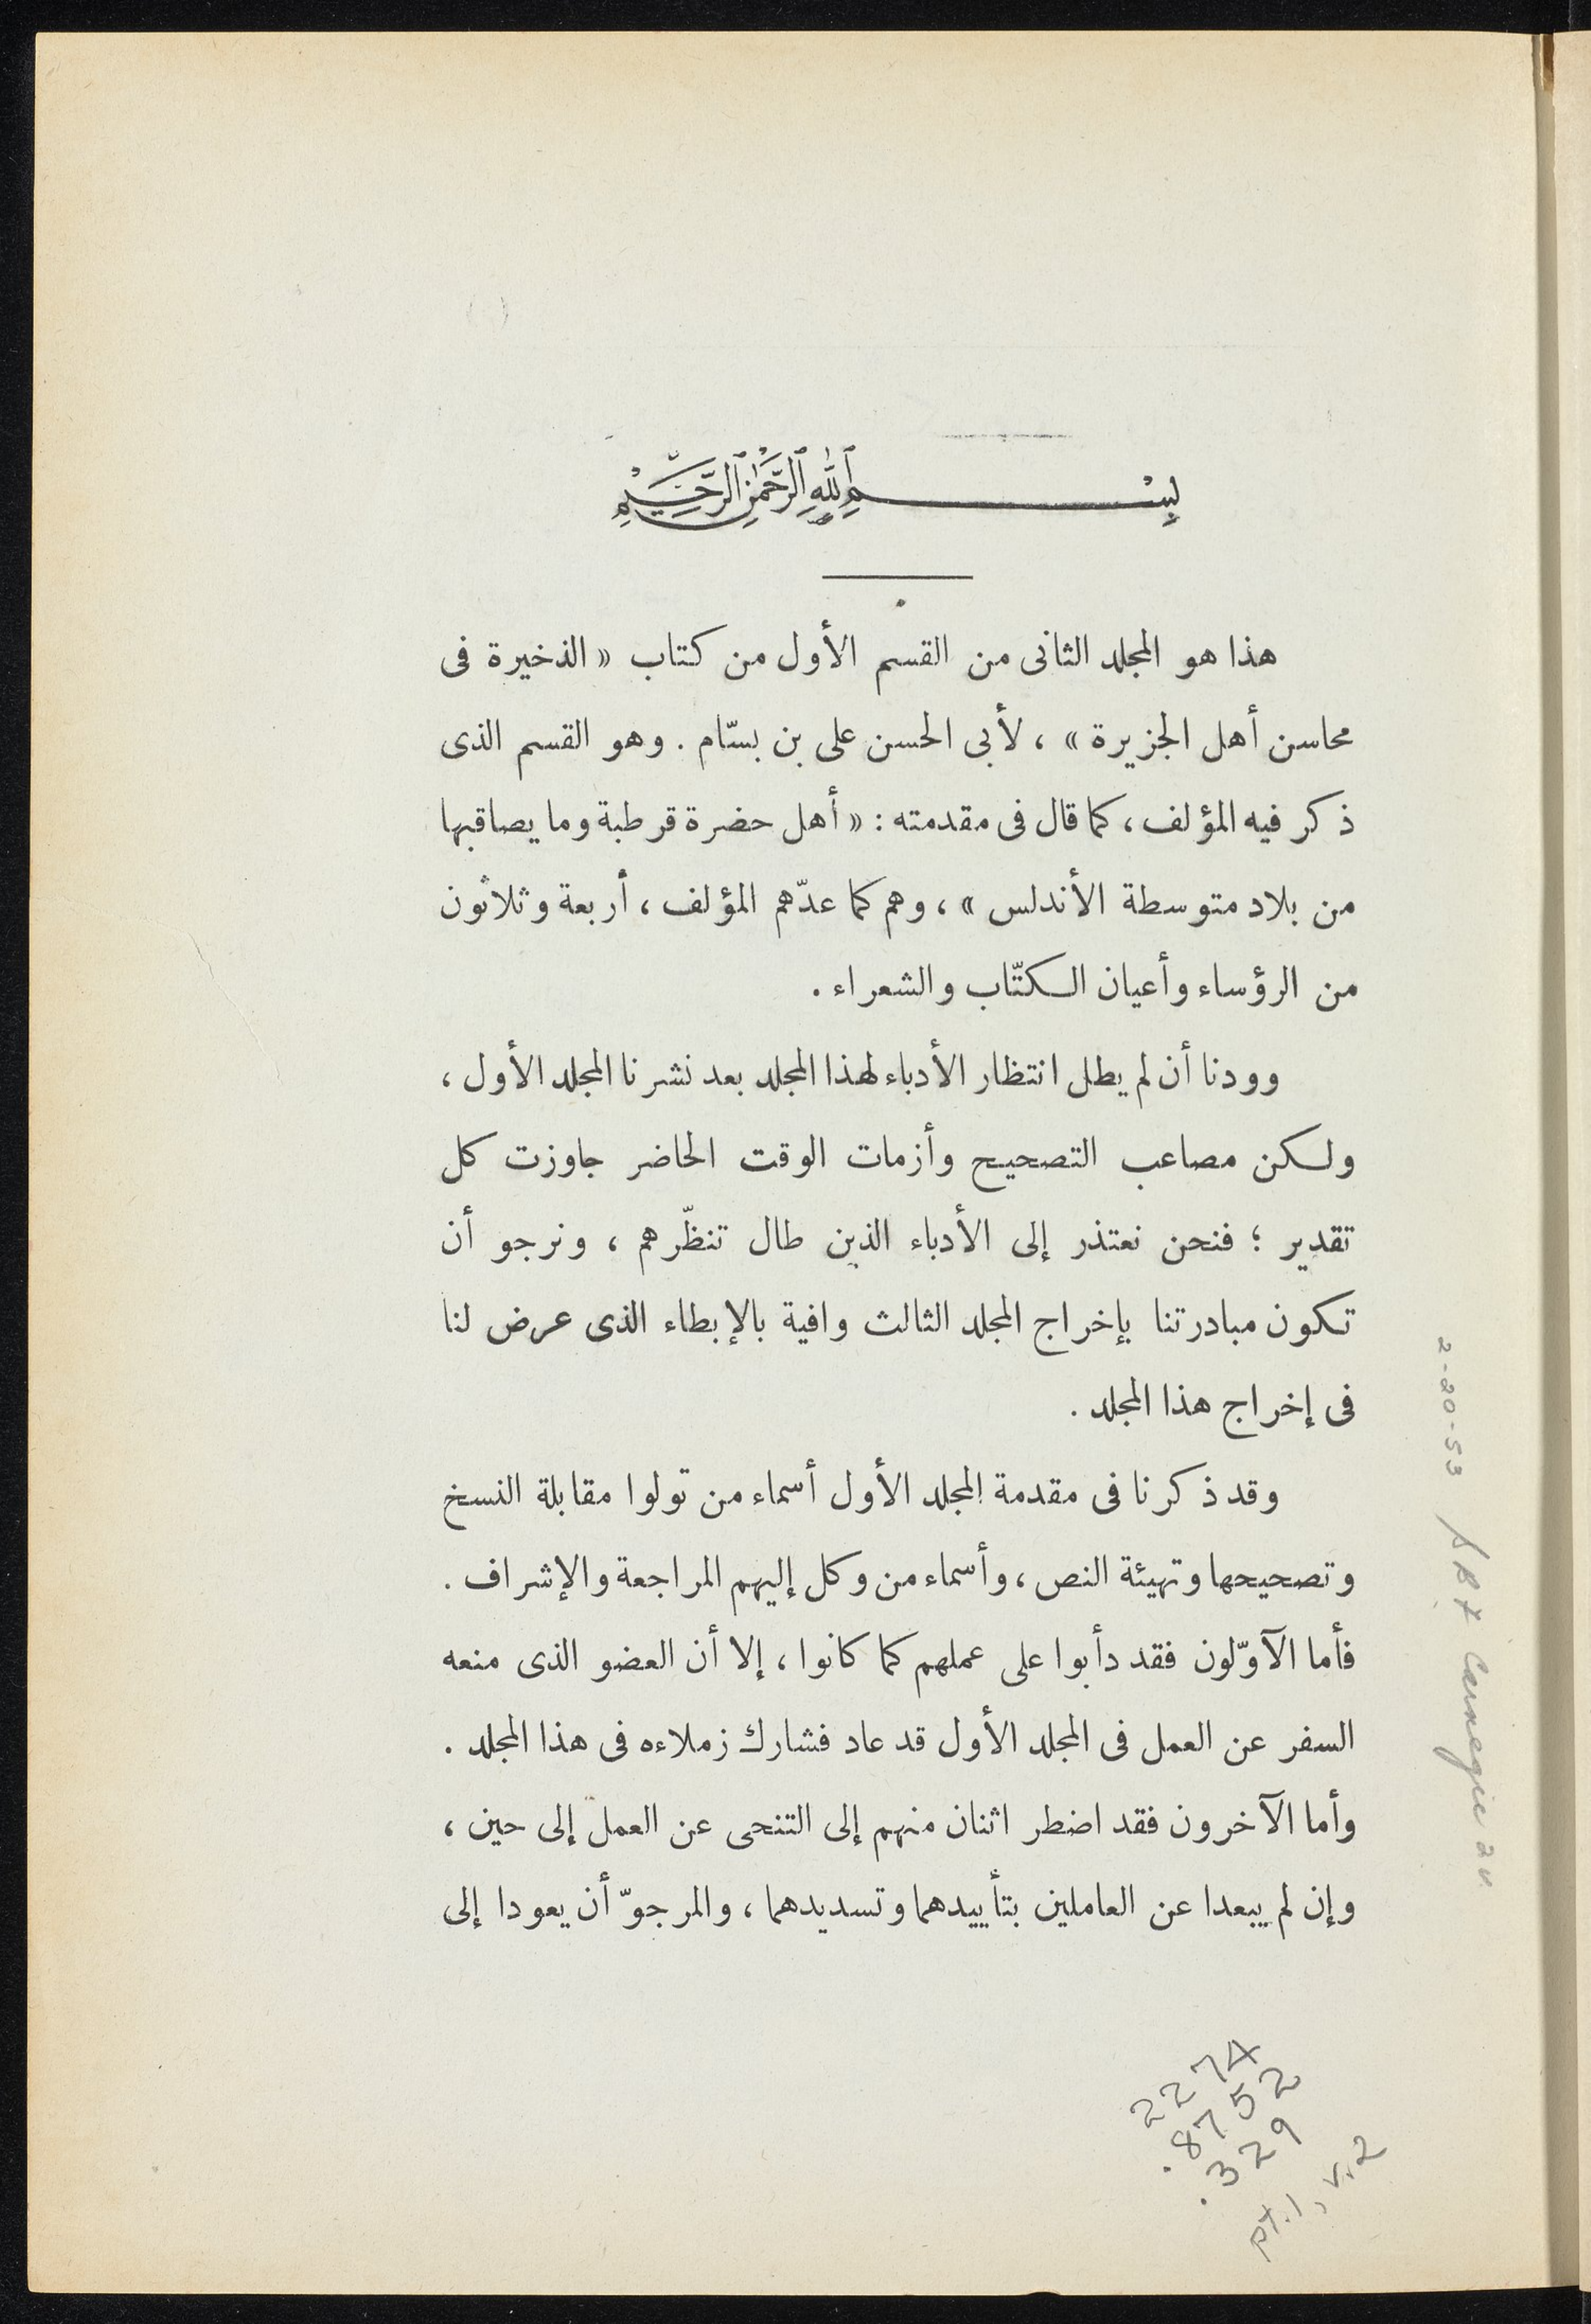 بِسْمِ ٱللّٰهِ ٱلرَّحْمٰنِ ٱلرَّحِيْمِ
هذا هو المجلد الثانى من القسم الأول من كتاب «الذخيرة فى
محاسن أهل الجزيرة» ، لأبى الحسن على بن بسّام . وهو القسم الذى
ذكر فيه المؤلف ، كما قال فى مقدمته : «أهل حضرة قرطبة وما يصاقبها
من بلاد متوسطة الأندلس» ، وهم كما عدّهم المؤلف ، أربعة وثلاثون
من الرؤساء وأعيان الكتّاب والشعراء .
وودنا أن لم يطل انتظار الأدباء لهذا المجلد بعد نشرنا المجلد الأول ،
ولكن مصاعب التصحيح وأزمات الوقت الحاضر جاوزت كل
تقدير ؛ فنحن نعتذر إلى الأدباء الذين طال تنظّرهم ، ونرجو أن
تكون مبادرتنا بإخراج المجلد الثالث وافية بالإبطاء الذى عرض لنا
فى إخراج هذا المجلد .
وقد ذكرنا فى مقدمة المجلد الأول أسماء من تولوا مقابلة النسخ
وتصحيحها وتهيئة النص ، وأسماء من وكل إليهم المراجعة والإشراف .
فأما الآوّلون فقد دأبوا على عملهم كما كانوا ، إلا أن العضو الذى منعه
السفر عن العمل فى المجلد الأول قد عاد فشارك زملاءه فى هذا المجلد .
وأما الآخرون فقد اضطر اثنان منهم إلى التنحى عن العمل إلى حين ،
وإن لم يبعدا عن العاملين بتأييدهما وتسديدهما ، والمرجوّ أن يعودا إلى
2-20-53 Carnegie
2274
.8752
.329
pt.1, v.2